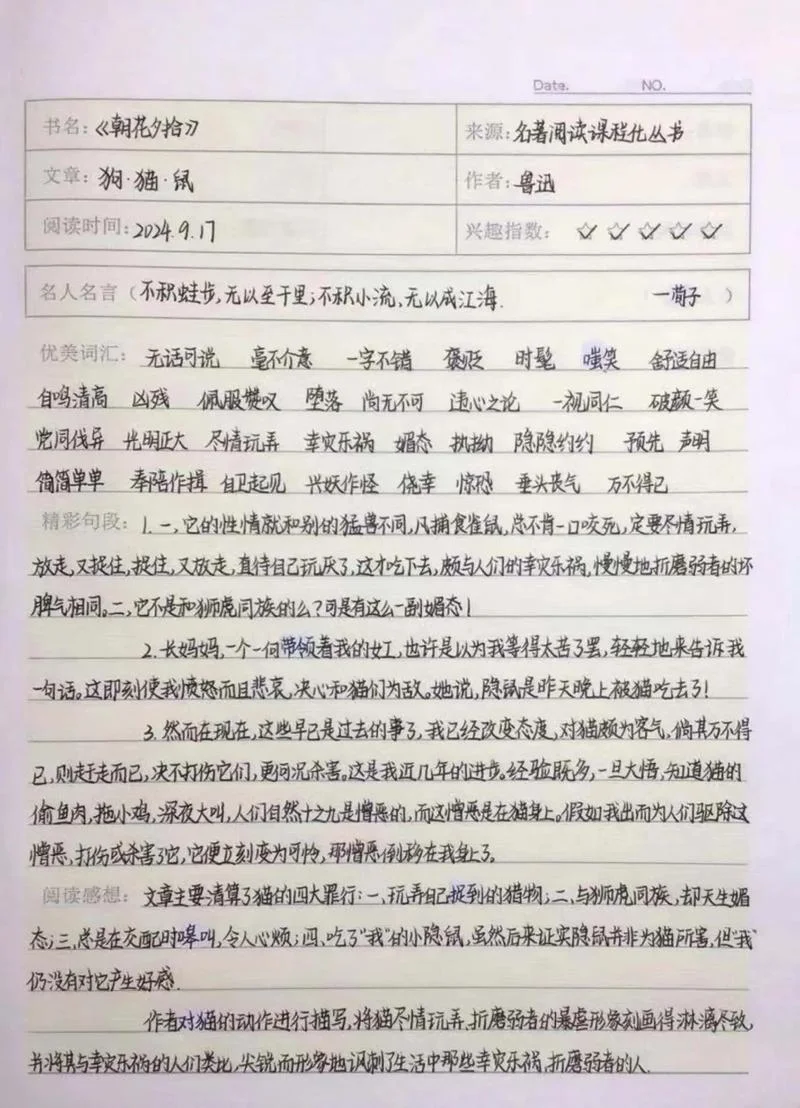 Date. NO.
书名：《朝花夕拾》 来源：名著阅读课程化丛书
文章：狗·猫·鼠 作者：鲁迅
阅读时间：2024.9.17 兴趣指数：☆☆☆☆☆
名人名言（不积蛙步，无以至千里；不积小流、无以成江海. 一荀子）
优美词汇：无话可说 毫不介意 一字不错 褒贬 时髦 嗤笑 舒适自由
自鸣清高 凶残 佩服赞叹 堕落 尚无不可 违心之论 一视同仁 破颜一笑
党同伐异 光明正大 尽情玩弄 幸灾乐祸 媚态 执拗 隐隐约约 预先 声明
简简单单 奉陪作揖 自卫起见 兴妖作怪 侥幸 惊恐 垂头丧气 万不得已
精彩句段：1. 一，它的性情就和别的猛兽不同，凡捕食雀鼠，总不肯一口咬死，定要尽情玩弄，
放走，又捉住，捉住，又放走，直待自己玩厌了，这才吃下去，颇与人们的幸灾乐祸，慢慢地折磨弱者的坏
脾气相同。二，它不是和狮虎同族的么？可是有这么一副媚态！
2. 长妈妈，一个一向带领着我的女工，也许是以为我等得太苦了罢，轻轻地来告诉我
一句话。这即刻使我愤怒而且悲哀，决心和猫们为敌。她说，隐鼠是昨天晚上被猫吃去了！
3. 然而在现在，这些早已是过去的事了，我已经改变态度，对猫颇为客气，倘其万不得
已，则赶走而已，决不打伤它们，更何况杀害。这是我近几年的进步。经验既多，一旦大悟，知道猫的
偷鱼肉，拖小鸡，深夜大叫，人们自然十之九是憎恶的，而这憎恶是在猫身上。假如我出而为人们驱除这
憎恶，打伤或杀害了它，它便立刻变为可怜，那憎恶倒移在我身上了。
阅读感想：文章主要清算了猫的四大罪行：一、玩弄自己捉到的猎物；二、与狮虎同族，却天生媚
态；三、总是在交配时嗥叫，令人心烦；四、吃了“我”的小隐鼠，虽然后来证实隐鼠并非为猫所害，但“我”
仍没有对它产生好感.
作者对猫的动作进行描写，将猫尽情玩弄、折磨弱者的暴虐形象刻画得淋漓尽致，
并将其与幸灾乐祸的人们类比，尖锐而形象地讽刺了生活中那些幸灾乐祸，折磨弱者的人.